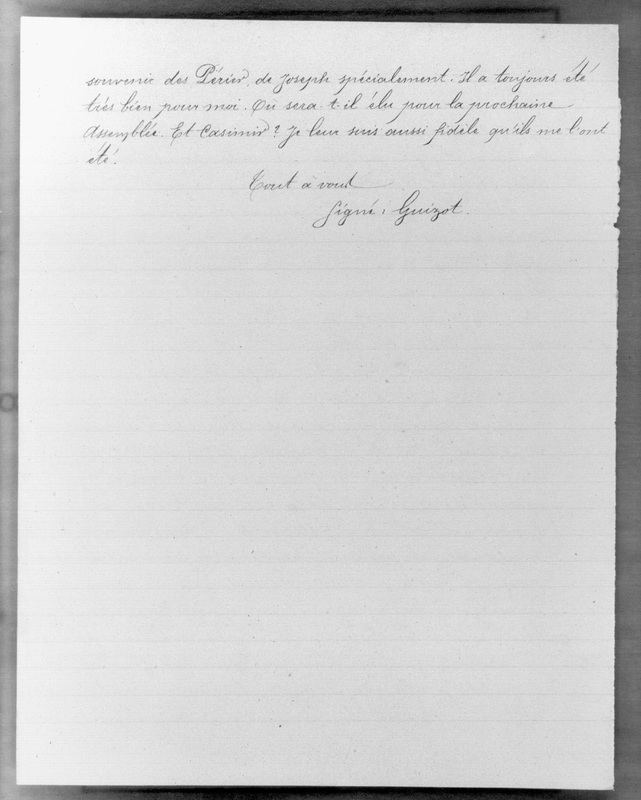 souvenir des Périer, de Joseph spécialement. Il a toujours été
très bien pour moi. Où sera-t-il élu pour la prochaine
Assemblée. Et Casimir ? Je leur suis aussi fidèle qu'ils me l'ont
été.
Tout à vous
Signé : Guizot.